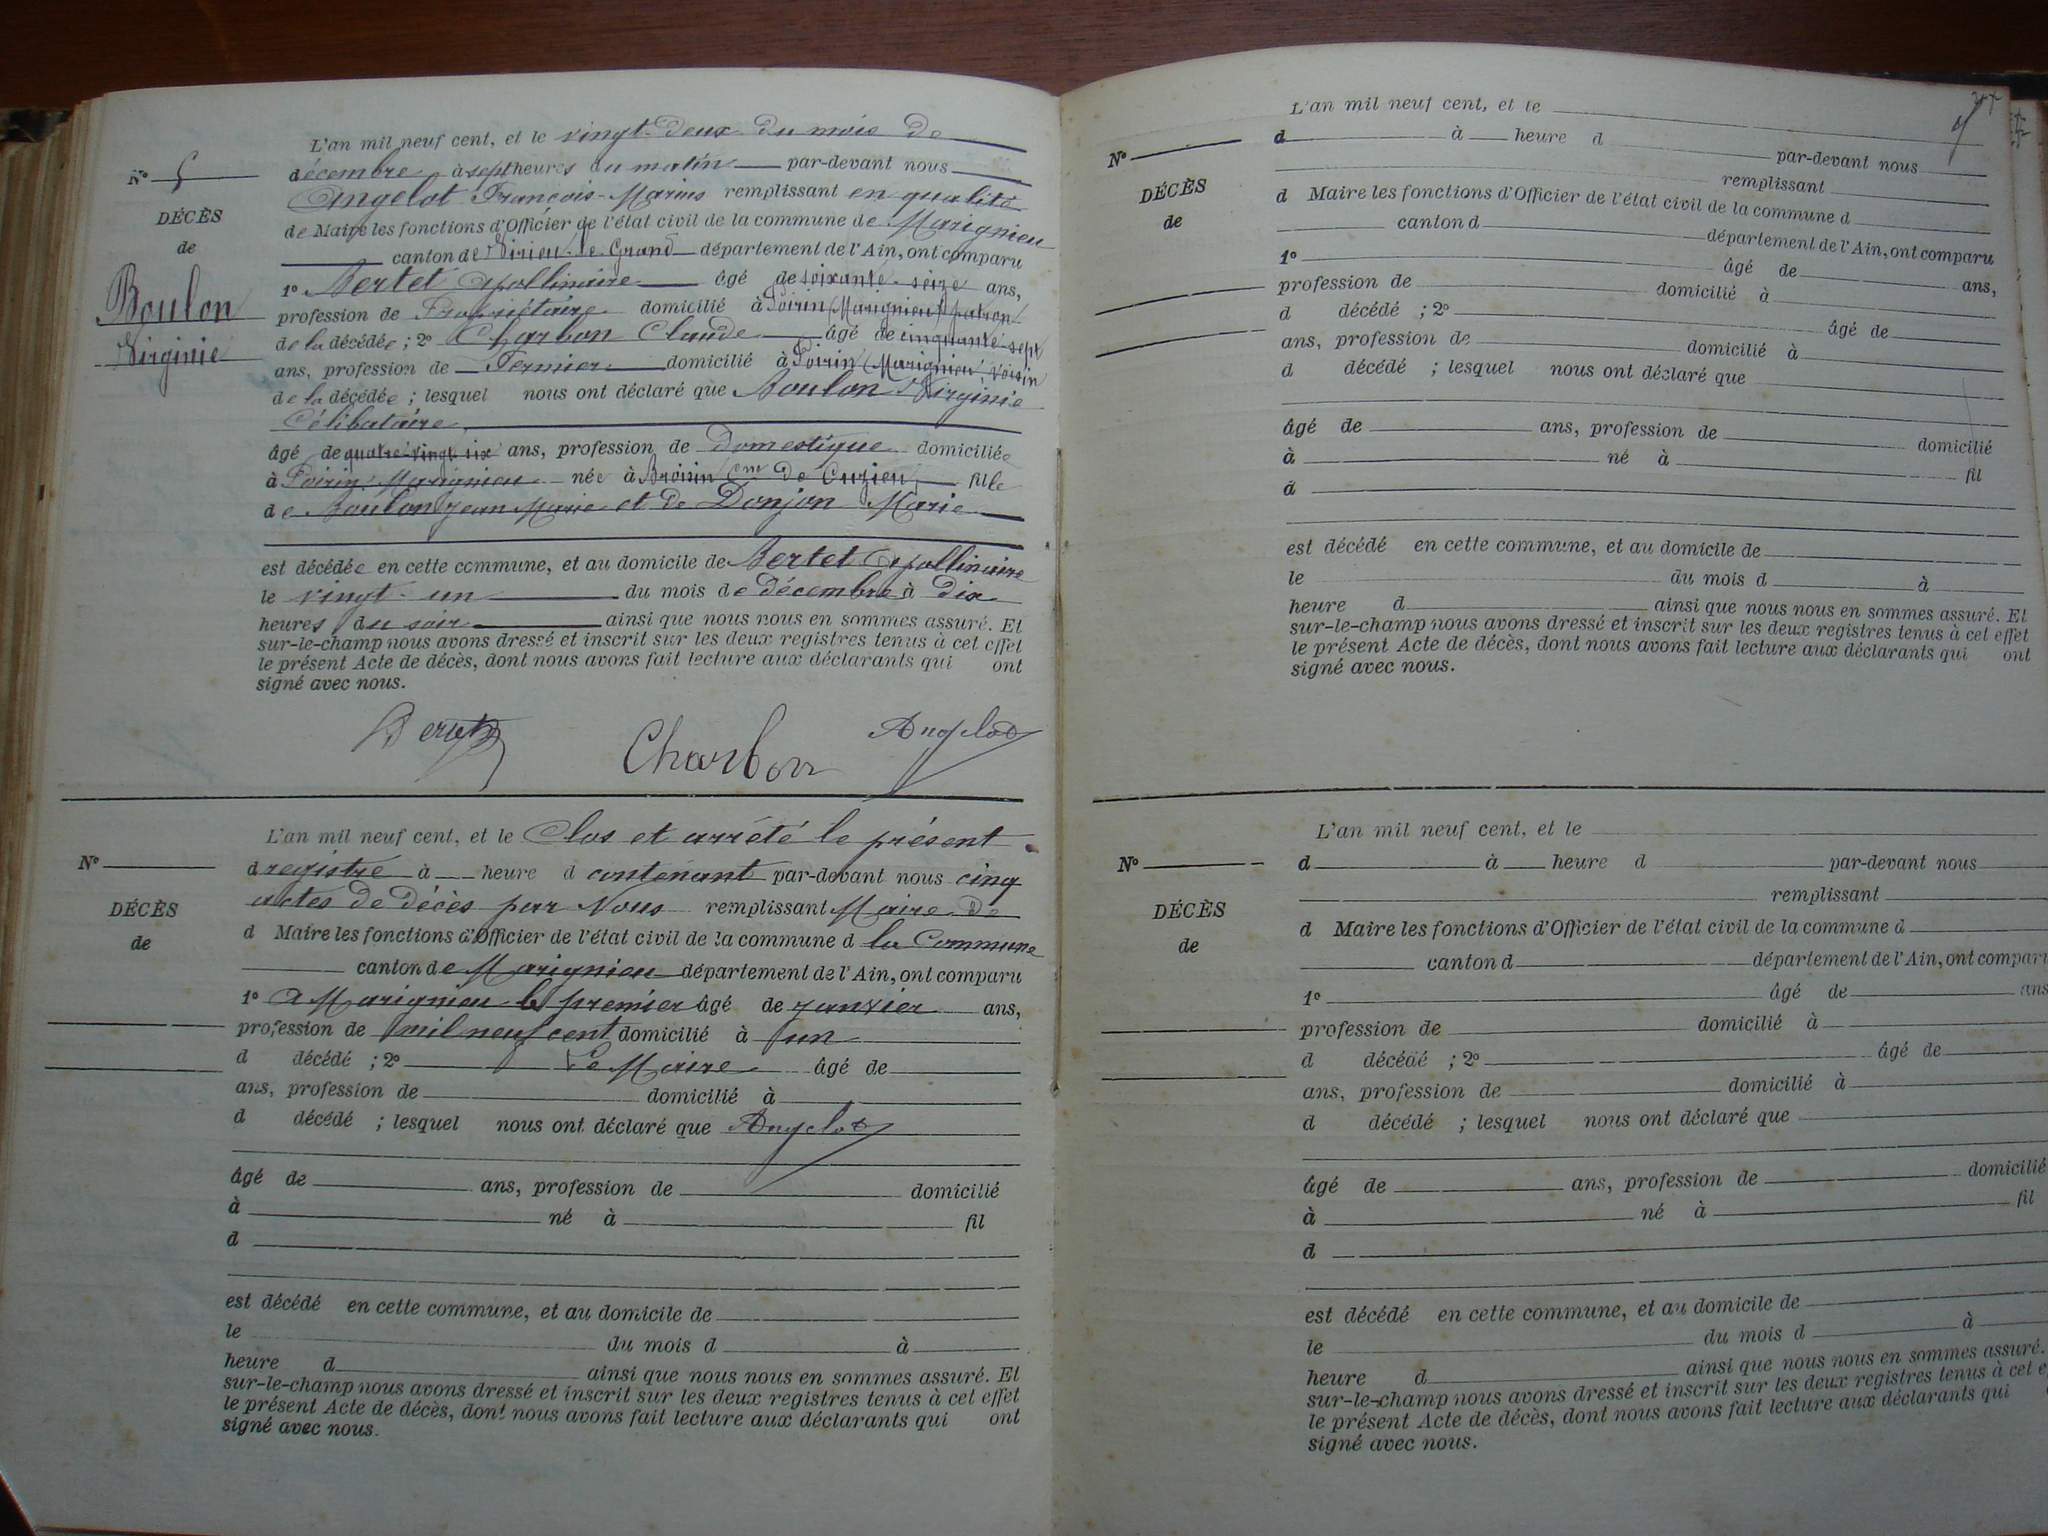 L'an mil neuf cent, et le vingt-deux du mois de
N° 5
décembre à sept heures du matin par-devant nous
Angelot François-Marius remplissant en qualité
DÉCÈS
de Maire les fonctions d'Officier de l'état civil de la commune de Marignieu
de
canton de Virieu-le-Grand département de l'Ain, ont comparu
Boulon
Virginie
1° Bertet Apollinaire âgé de soixante-seize ans,
profession de Propriétaire domicilié à Poirin (Marignieu) patron
de la décédée ; 2° Charbon Claude âgé de cinquante-sept
ans, profession de Fermier domicilié à Poirin (Marignieu) voisin
de la décédée ; lesquel nous ont déclaré que Boulon Virginie
Célibataire
âgé de quatre-vingt-six ans, profession de Domestique domiciliée
à Poirin Marignieu née à Broisin Cne de Cuzieu fille
de Boulon Jean Marie et de Donjon Marie
est décédée en cette commune, et au domicile de Bertet Apollinaire
le vingt-un du mois de décembre à dix
heures du soir ainsi que nous nous en sommes assuré. Et
sur-le-champ nous avons dressé et inscrit sur les deux registres tenus à cet effet
le présent Acte de décès, dont nous avons fait lecture aux déclarants qui ont
signé avec nous.
Charbon Angelot
L'an mil neuf cent, et le Clos et arrêté le présent
N°
d registre à heure d contenant par-devant nous cinq
actes de décès par Nous remplissant Maire de
DÉCÈS
de
d Maire les fonctions d'Officier de l'état civil de la commune d la Commune
canton de Marignieu département de l'Ain, ont comparu
1° A Marignieu le premier âgé de janvier ans,
profession de mil neuf cent domicilié à un
d décédé ; 2° Le Maire âgé de
ans, profession de domicilié à
d décédé ; lesquel nous ont déclaré que Angelot
âgé de ans, profession de domicilié
à né à fil
d
est décédé en cette commune, et au domicile de
le du mois d à
heure d ainsi que nous nous en sommes assuré. Et
sur-le-champ nous avons dressé et inscrit sur les deux registres tenus à cet effet
le présent Acte de décès, dont nous avons fait lecture aux déclarants qui ont
signé avec nous.
L'an mil neuf cent, et le
N°
d à heure d par-devant nous
remplissant
DÉCÈS
de
d Maire les fonctions d'Officier de l'état civil de la commune d
canton d département de l'Ain, ont comparu
1° âgé de ans,
profession de domicilié à
d décédé ; 2° âgé de
ans, profession de domicilié à
d décédé ; lesquel nous ont déclaré que
âgé de ans, profession de domicilié
à né à fil
d
est décédé en cette commune, et au domicile de
le du mois d à
heure d ainsi que nous nous en sommes assuré. Et
sur-le-champ nous avons dressé et inscrit sur les deux registres tenus à cet effet
le présent Acte de décès, dont nous avons fait lecture aux déclarants qui ont
signé avec nous.
L'an mil neuf cent, et le
N°
d à heure d par-devant nous
remplissant
DÉCÈS
de
d Maire les fonctions d'Officier de l'état civil de la commune d
canton d département de l'Ain, ont compar
1° âgé de ans
profession de domicilié à
d décédé ; 2° âgé de
ans, profession de domicilié à
d décédé ; lesquel nous ont déclaré que
âgé de ans, profession de domicilié
à né à fil
d
est décédé en cette commune, et au domicile de
le du mois d à
heure d ainsi que nous nous en sommes assuré.
sur-le-champ nous avons dressé et inscrit sur les deux registres tenus à cet e
le présent Acte de décès, dont nous avons fait lecture aux déclarants qui
signé avec nous.